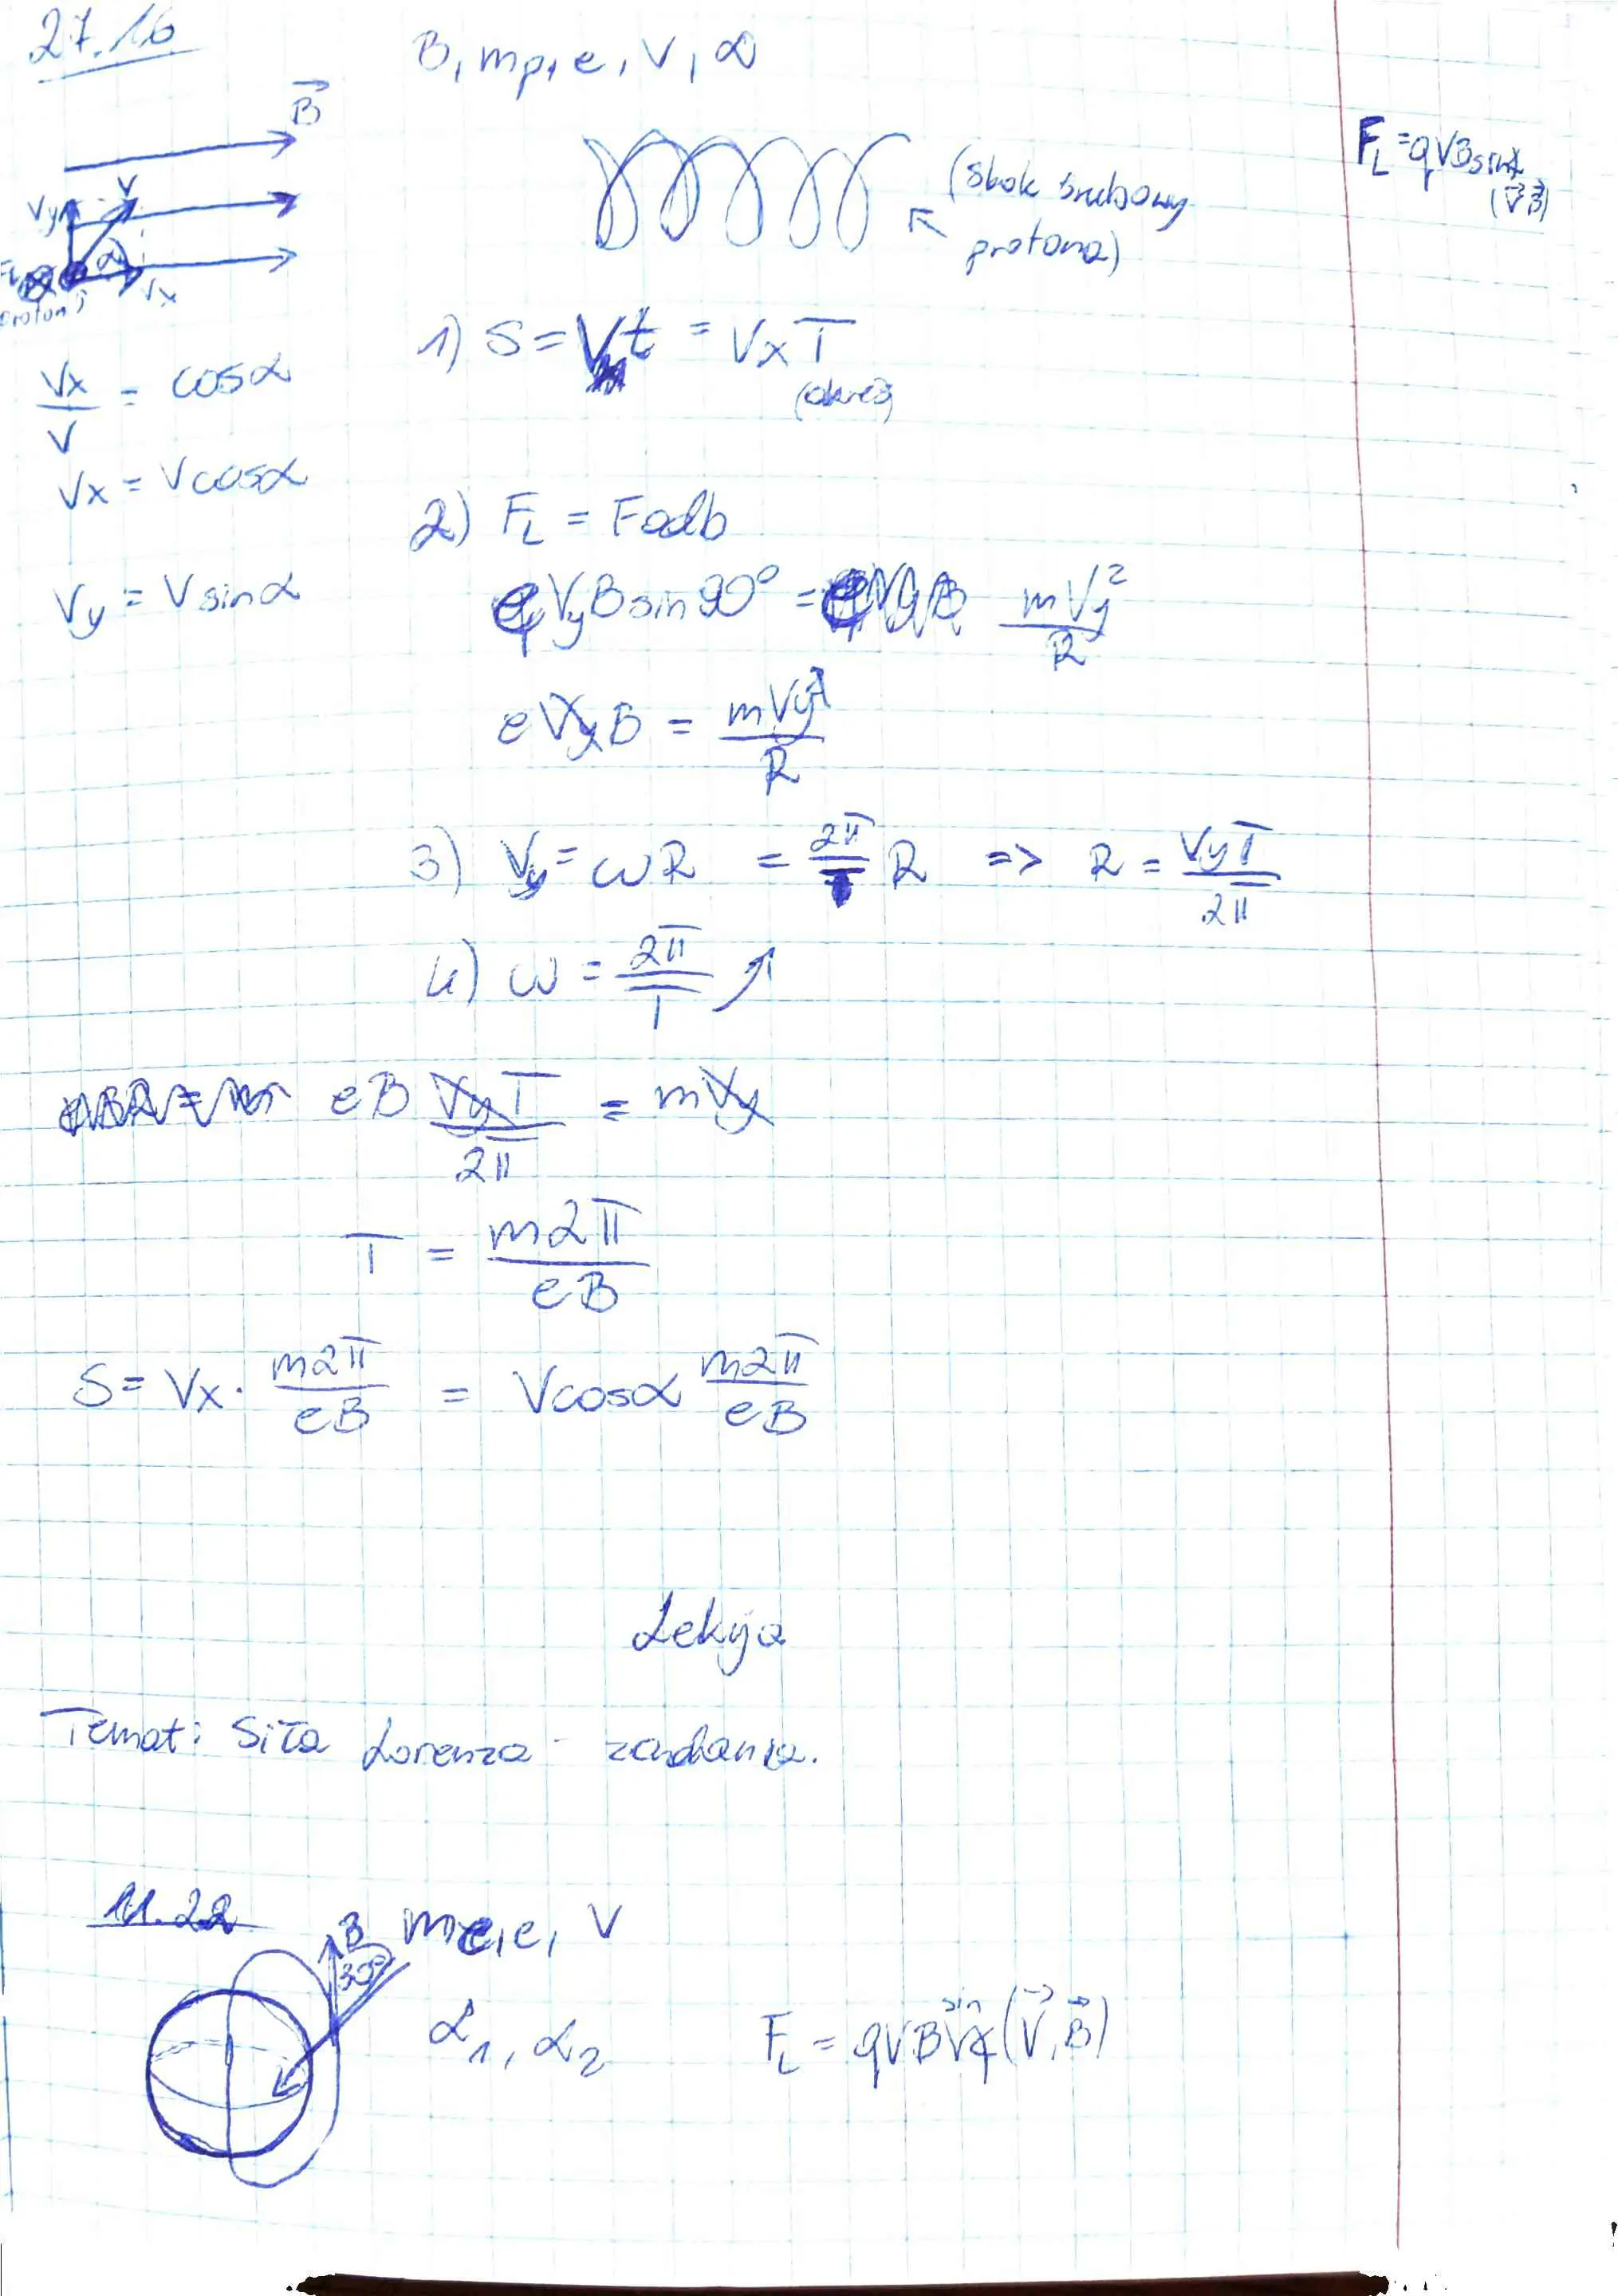 27.16
B, mp, e, V, α
B
Vy V
α
Vx
(skok śrubowy
protona)
F_L = qVB sin∢
(V⃗ B⃗)
Vx/V = cosα
Vx = Vcosα
Vy = V sinα
1) S = Vt = Vx T
(okres)
2) F_L = Fodb
eVyB sin90° = mVy²/R
eVyB = mVy²/R
3) Vy = ωR = 2π/T R => R = VyT/2π
4) ω = 2π/T
eB VyT/2π = mVy
T = m2π/eB
S = Vx · m2π/eB = Vcosα m2π/eB
Lekcja
Temat: Siła Lorenza - zadania.
11.22
B
30°
me, e, V
α₁, α₂
F_L = qVB sin∢(V⃗, B⃗)